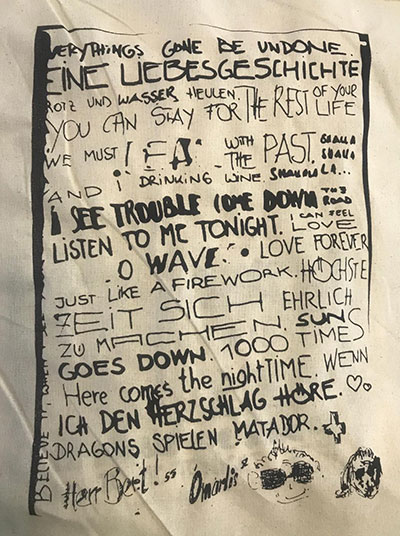 EVERYTHINGS GONE BE UNDONE.
EINE LIEBESGESCHICHTE
ROTZ UND WASSER HEULEN. THE REST OF YOUR LIFE
YOU CAN STAY FOR
WE MUST LEARN WITH THE PAST. SHALA SHALA
AND I DRINKING WINE SHALALALA...
I SEE TROUBLE COME DOWN THE ROAD
LISTEN TO ME TONIGHT. I CAN FEEL LOVE
O WAVE. LOVE FOREVER
JUST LIKE A FIREWORK. HÖCHSTE
ZEIT SICH EHRLICH
ZU MACHEN. SUN
GOES DOWN. 1000 TIMES
Here comes the night TIME. WENN
ICH DEN HERZSCHLAG HÖRE.
DRAGONS SPIELEN MATADOR.
BELIEVE IT WHEN
Herr Beet! Omarlis